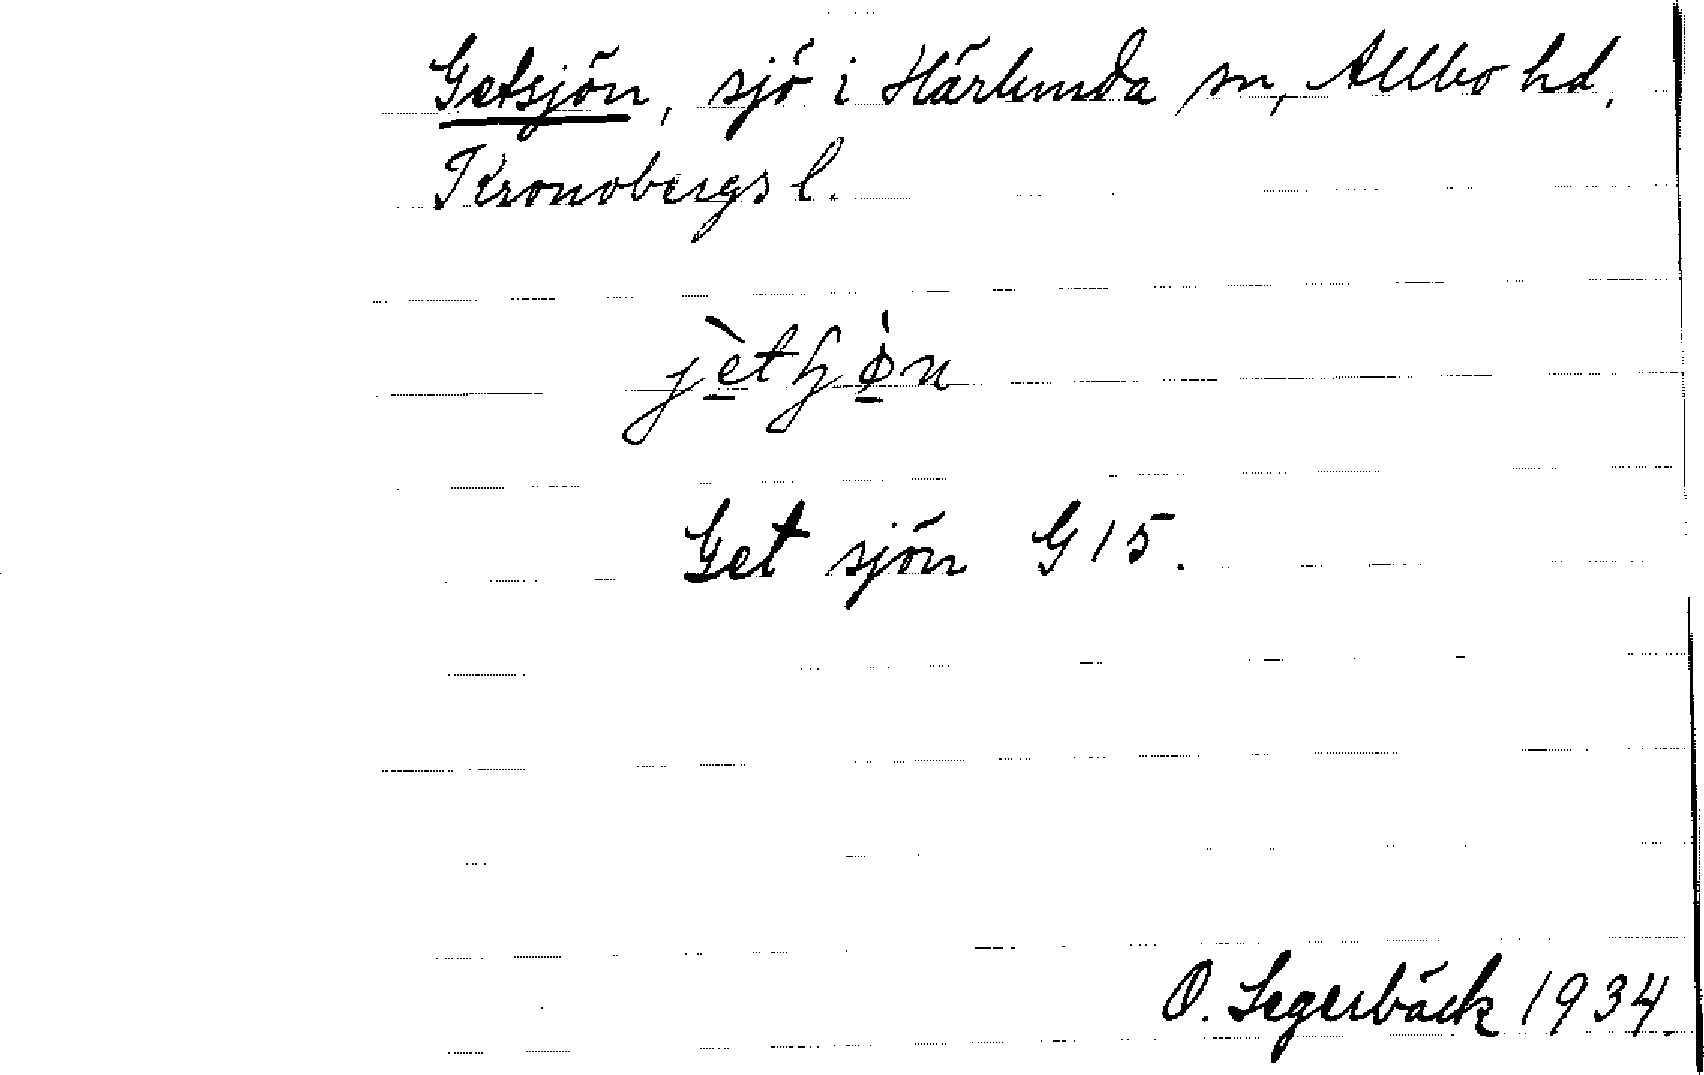 Getsjön, sjö i Härlunda sn, Allbo hd,
Kronobergs l.
jè̲tɧø̲̀n
Get sjön G 15.
O. Segerbäck 1934.